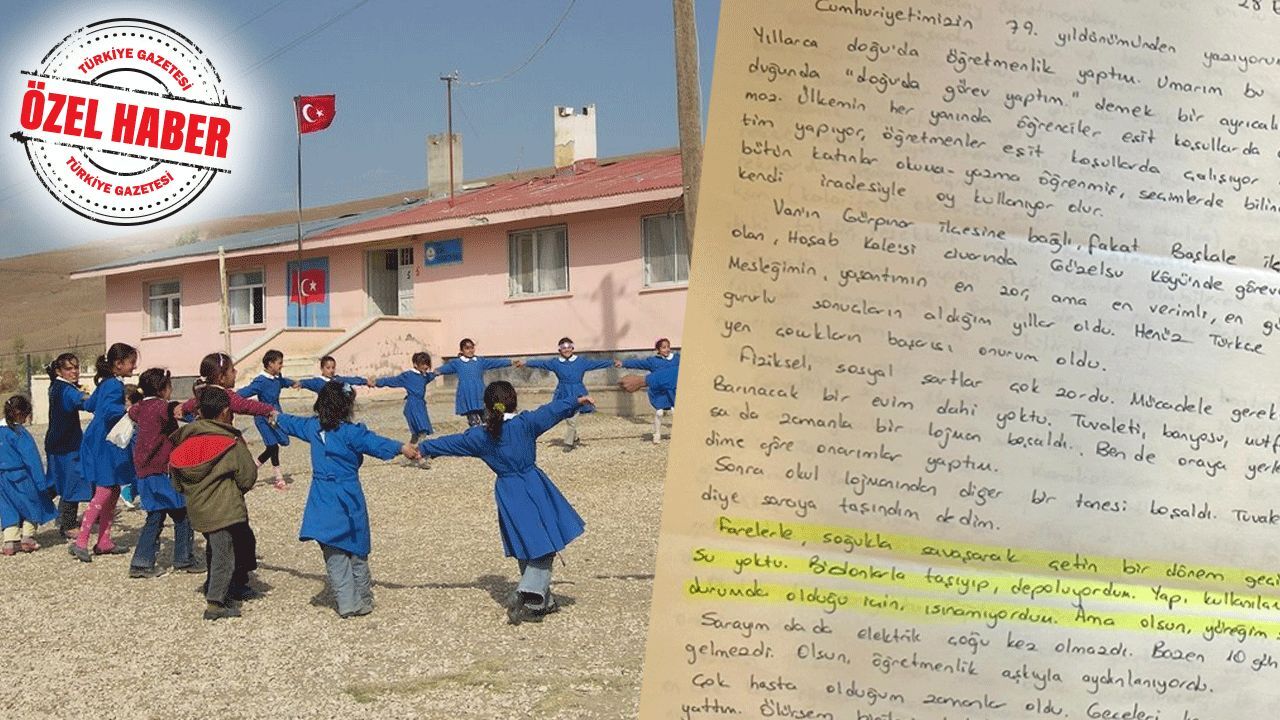 TÜRKİYE GAZETESİ
ÖZEL HABER
TÜRKİYE GAZETESİ
28
Cumhuriyetimizin 79. yıldönümünden yazıyorum
Yıllarca doğu'da öğretmenlik yaptım. Umarım bu
duğunda "doğu'da görev yaptım." demek bir ayrıcalı
maz. Ülkemin her yanında öğrenciler eşit koşullarda
tim yapıyor, öğretmenler eşit koşullarda çalışıyor
bütün kadınlar okuma-yazma öğrenmiş, seçimlerde bilin
kendi iradesiyle oy kullanıyor olur.
Van'ın Gürpınar ilçesine bağlı, fakat Başkale il
olan, Hoşab Kalesi civarında Güzelsu Köyü'nde görev
Mesleğimin, yaşantımın en zor, ama en verimli, en g
gururlu sonuçların aldığım yıllar oldu. Henüz Türkçe
yen çocukların başarısı onurum oldu.
Fiziksel, sosyal şartlar çok zordu. Mücadele gerek
Barınacak bir evim dahi yoktu. Tuvaleti, banyosu, mutf
sa da zamanla bir lojman boşaldı. Ben de oraya yerle
dime göre onarımlar yaptım.
Sonra okul lojmanından diğer bir tanesi boşaldı. Tuvale
diye saraya taşındım dedim.
Farelerle, soğukla savaşarak çetin bir dönem geç
Su yoktu. Bidonlarla taşıyıp, depoluyordum. Yapı kullanıla
durumda olduğu için, ısınamıyordum. Ama olsun, yüreğim
Sarayım da da elektrik çoğu kez olmazdı. Bazen 10 gün
gelmezdi. Olsun, öğretmenlik aşkıyla aydınlanıyordu.
Çok hasta olduğum zamanlar oldu. Geceleri
yattım. Ölürsem